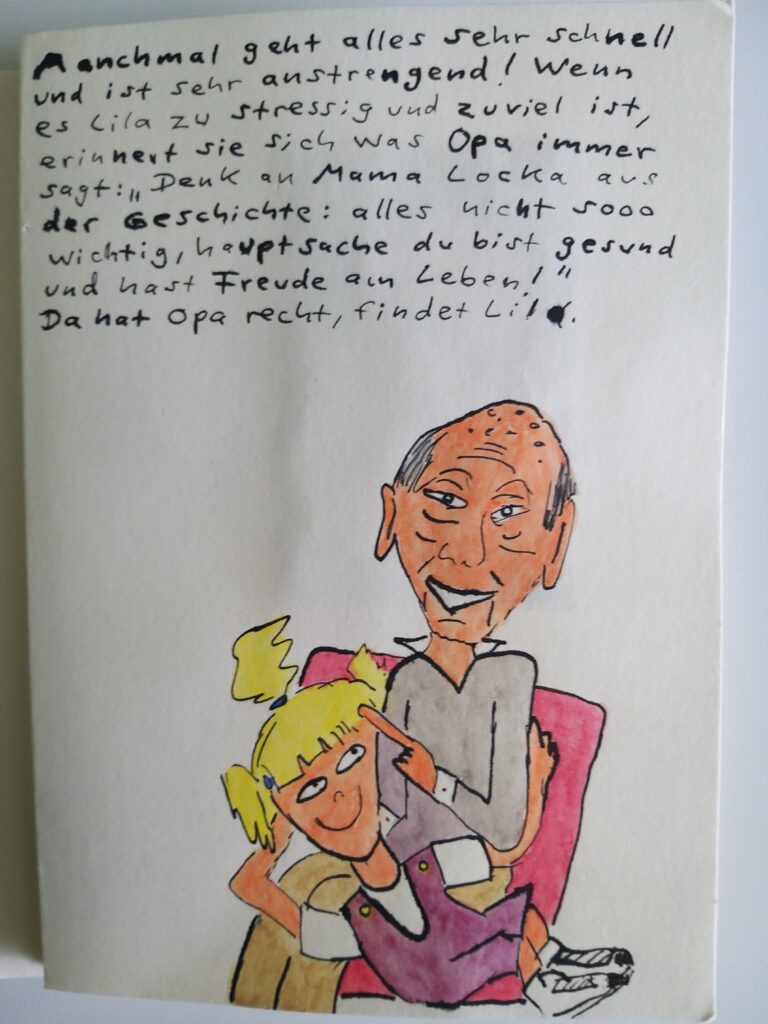 Manchmal geht alles sehr schnell
und ist sehr anstrengend! Wenn
es Lila zu stressig und zuviel ist,
erinnert sie sich was Opa immer
sagt: „Denk an Mama Locka aus
der Geschichte: alles nicht sooo
wichtig, hauptsache du bist gesund
und hast Freude am Leben!"
Da hat Opa recht, findet Lila.